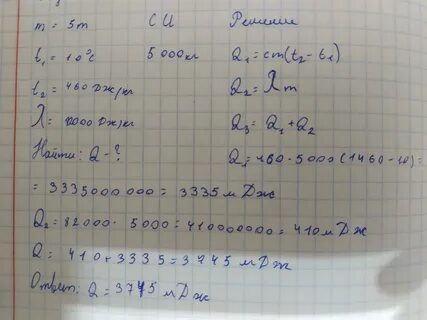 m = 5т СИ Решение
t₁ = 10°C 5000кг Q₁ = cm(t₂ - t₁)
t₂ = 460 Дж/кг Q₂ = λm
λ = 82000 Дж/кг Q₃ = Q₁ + Q₂
Найти: Q - ? Q₁ = 460 · 5000 (1460 - 10) =
= 3335000000 = 3335 мДж
Q₂ = 82000 · 5000 = 410000000 = 410 мДж
Q = 410 + 3335 = 3745 мДж
Ответ: Q = 3745 мДж